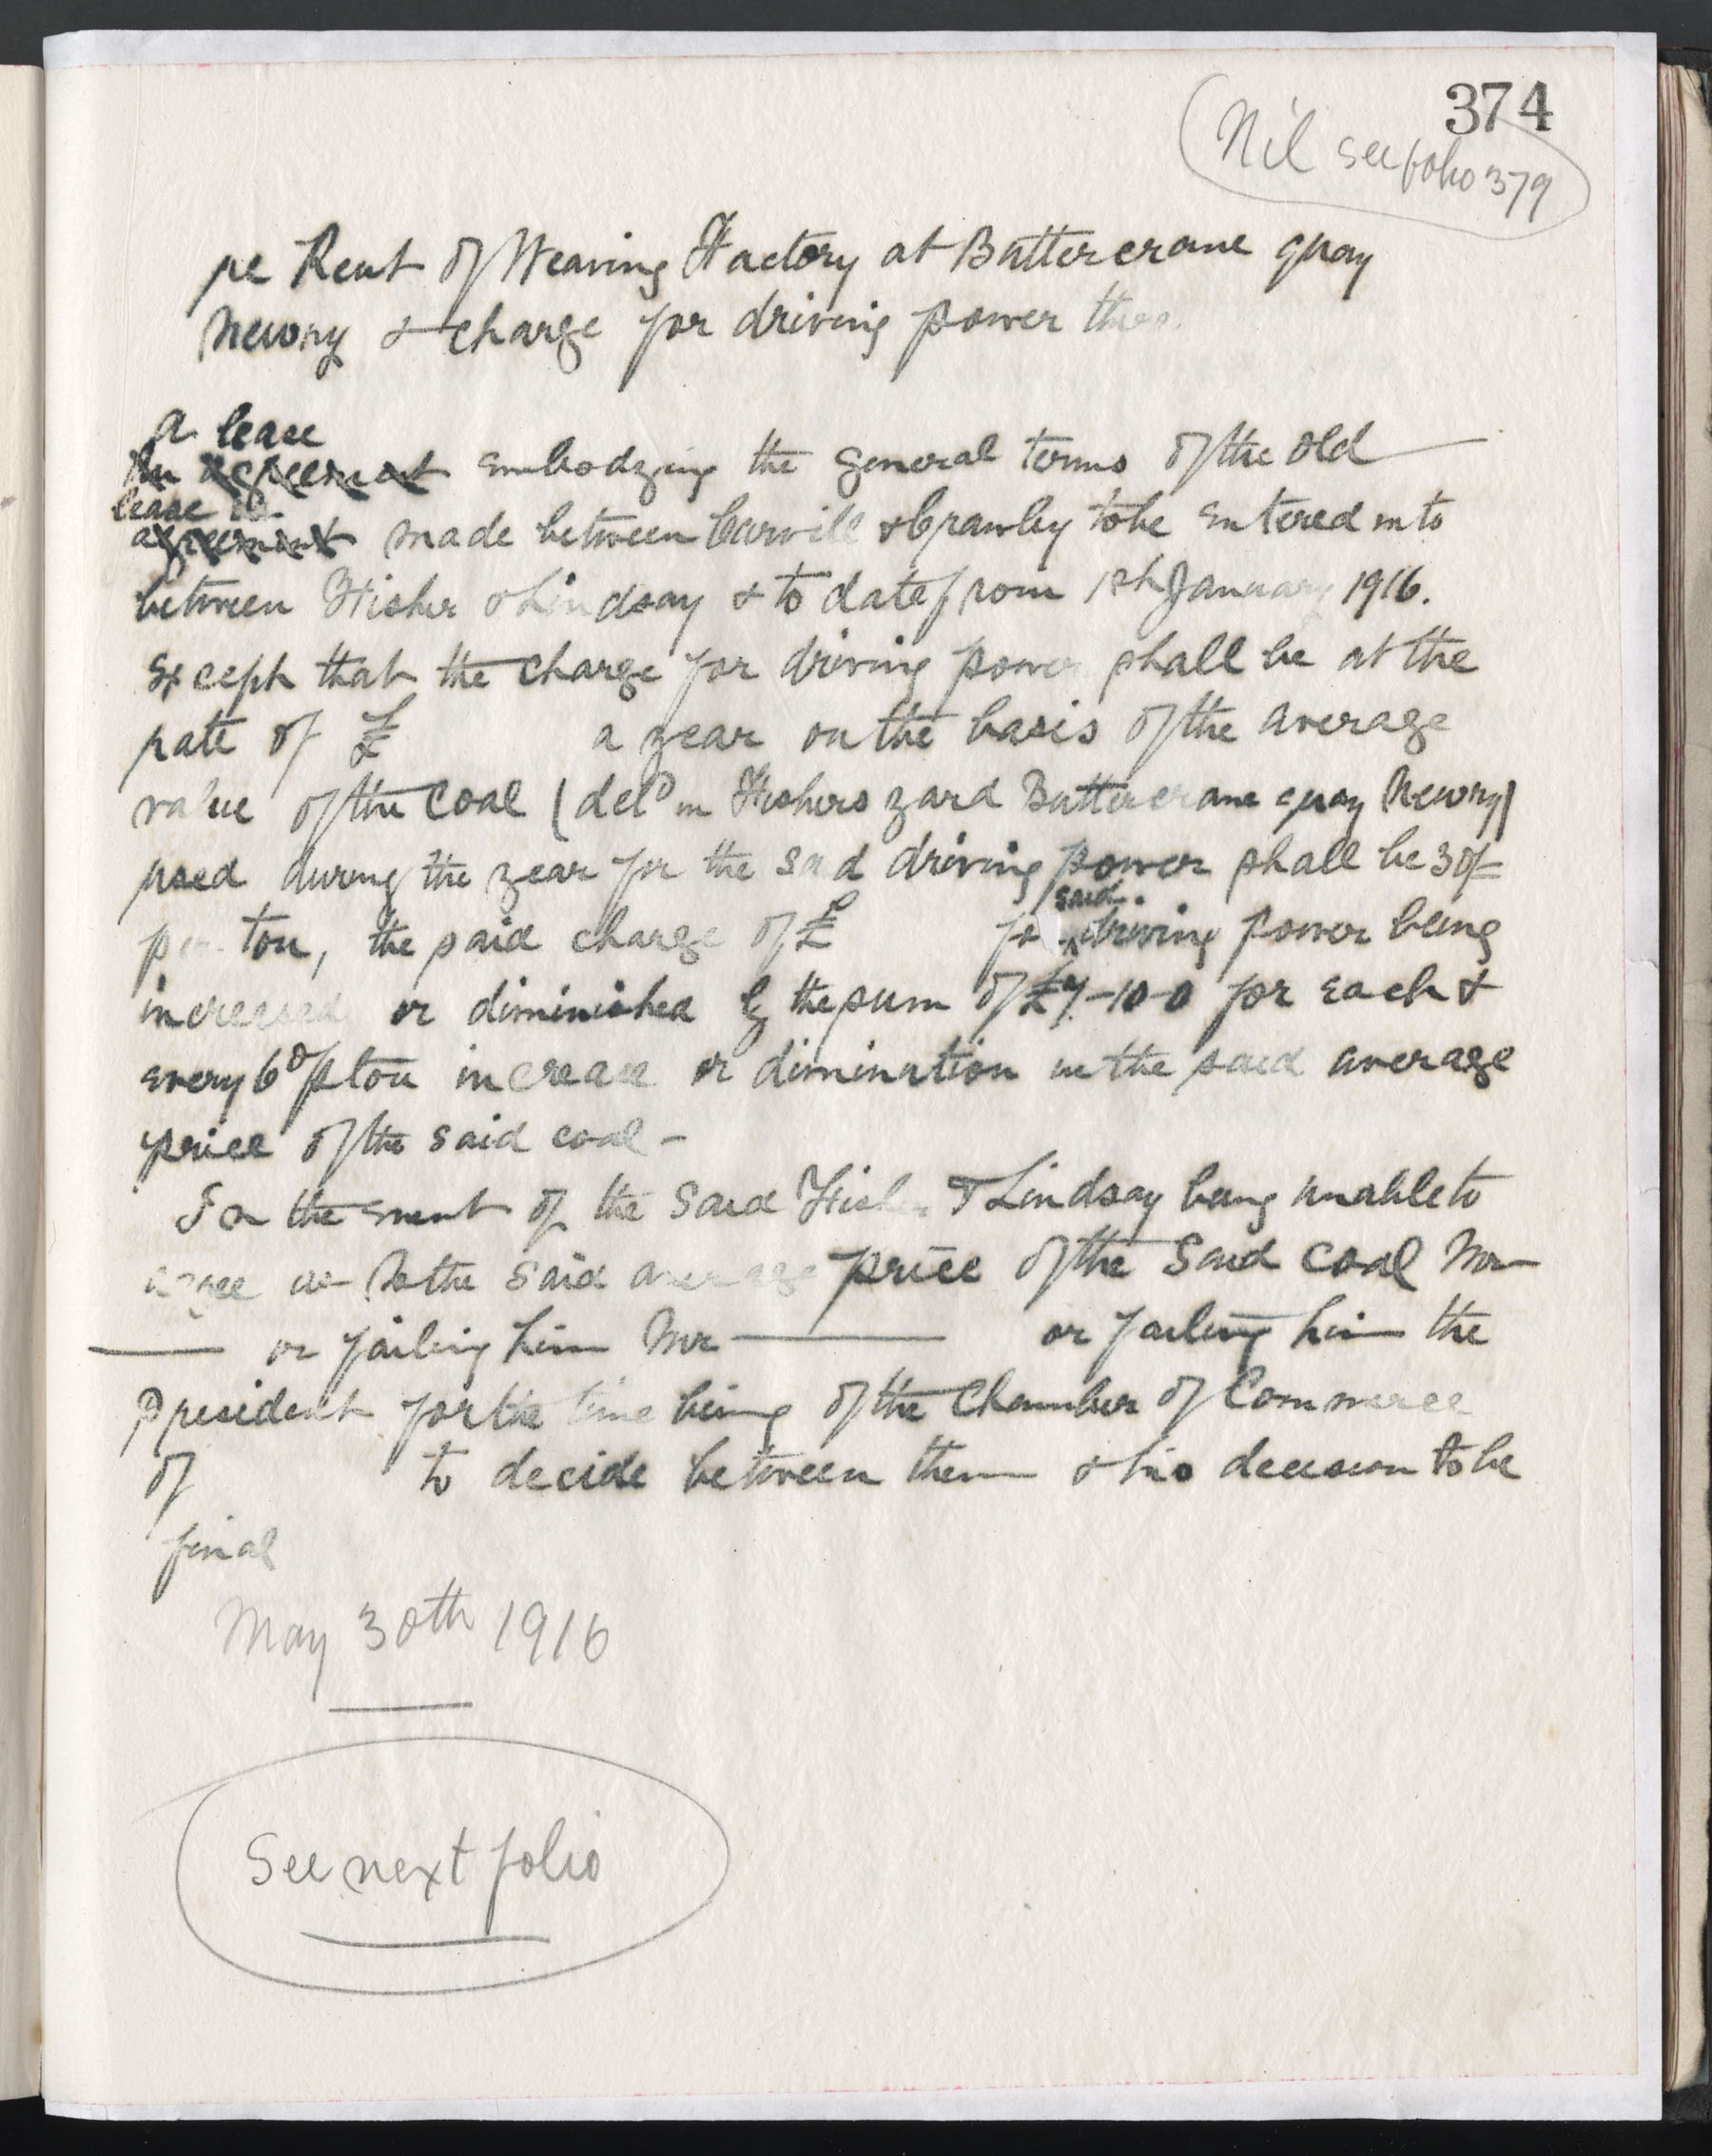 374
Nil see folio 379
re Rent of Weaving Factory at Buttercrane quay
Newry & charge for driving power
a lease
An agreement embodying the general terms of the old
lease
agreement made between Carvill & Crawley to be entered into
between Fisher & Lindsay & to date from 1st January 1916.
Except that the charge for driving power shall be at the
rate of £ a year on the basis of the average
value of the Coal (deld in Fishers yard Buttercrane quay Newry)
used during the year for the said driving power shall be 30/=
per ton, the said charge of £ for driving power being
said
increased or diminished by the sum of £7-10-0 for each &
every 6d p ton increase or diminution in the said average
price of the said coal -
In the event of the said Fisher & Lindsay being unable to
agree as to the said average price of the said coal Mr
— or failing him Mr — or failing him the
President for the time being of the Chamber of Commerce
of to decide between them & his decision to be
final
May 30th 1916
See next folio